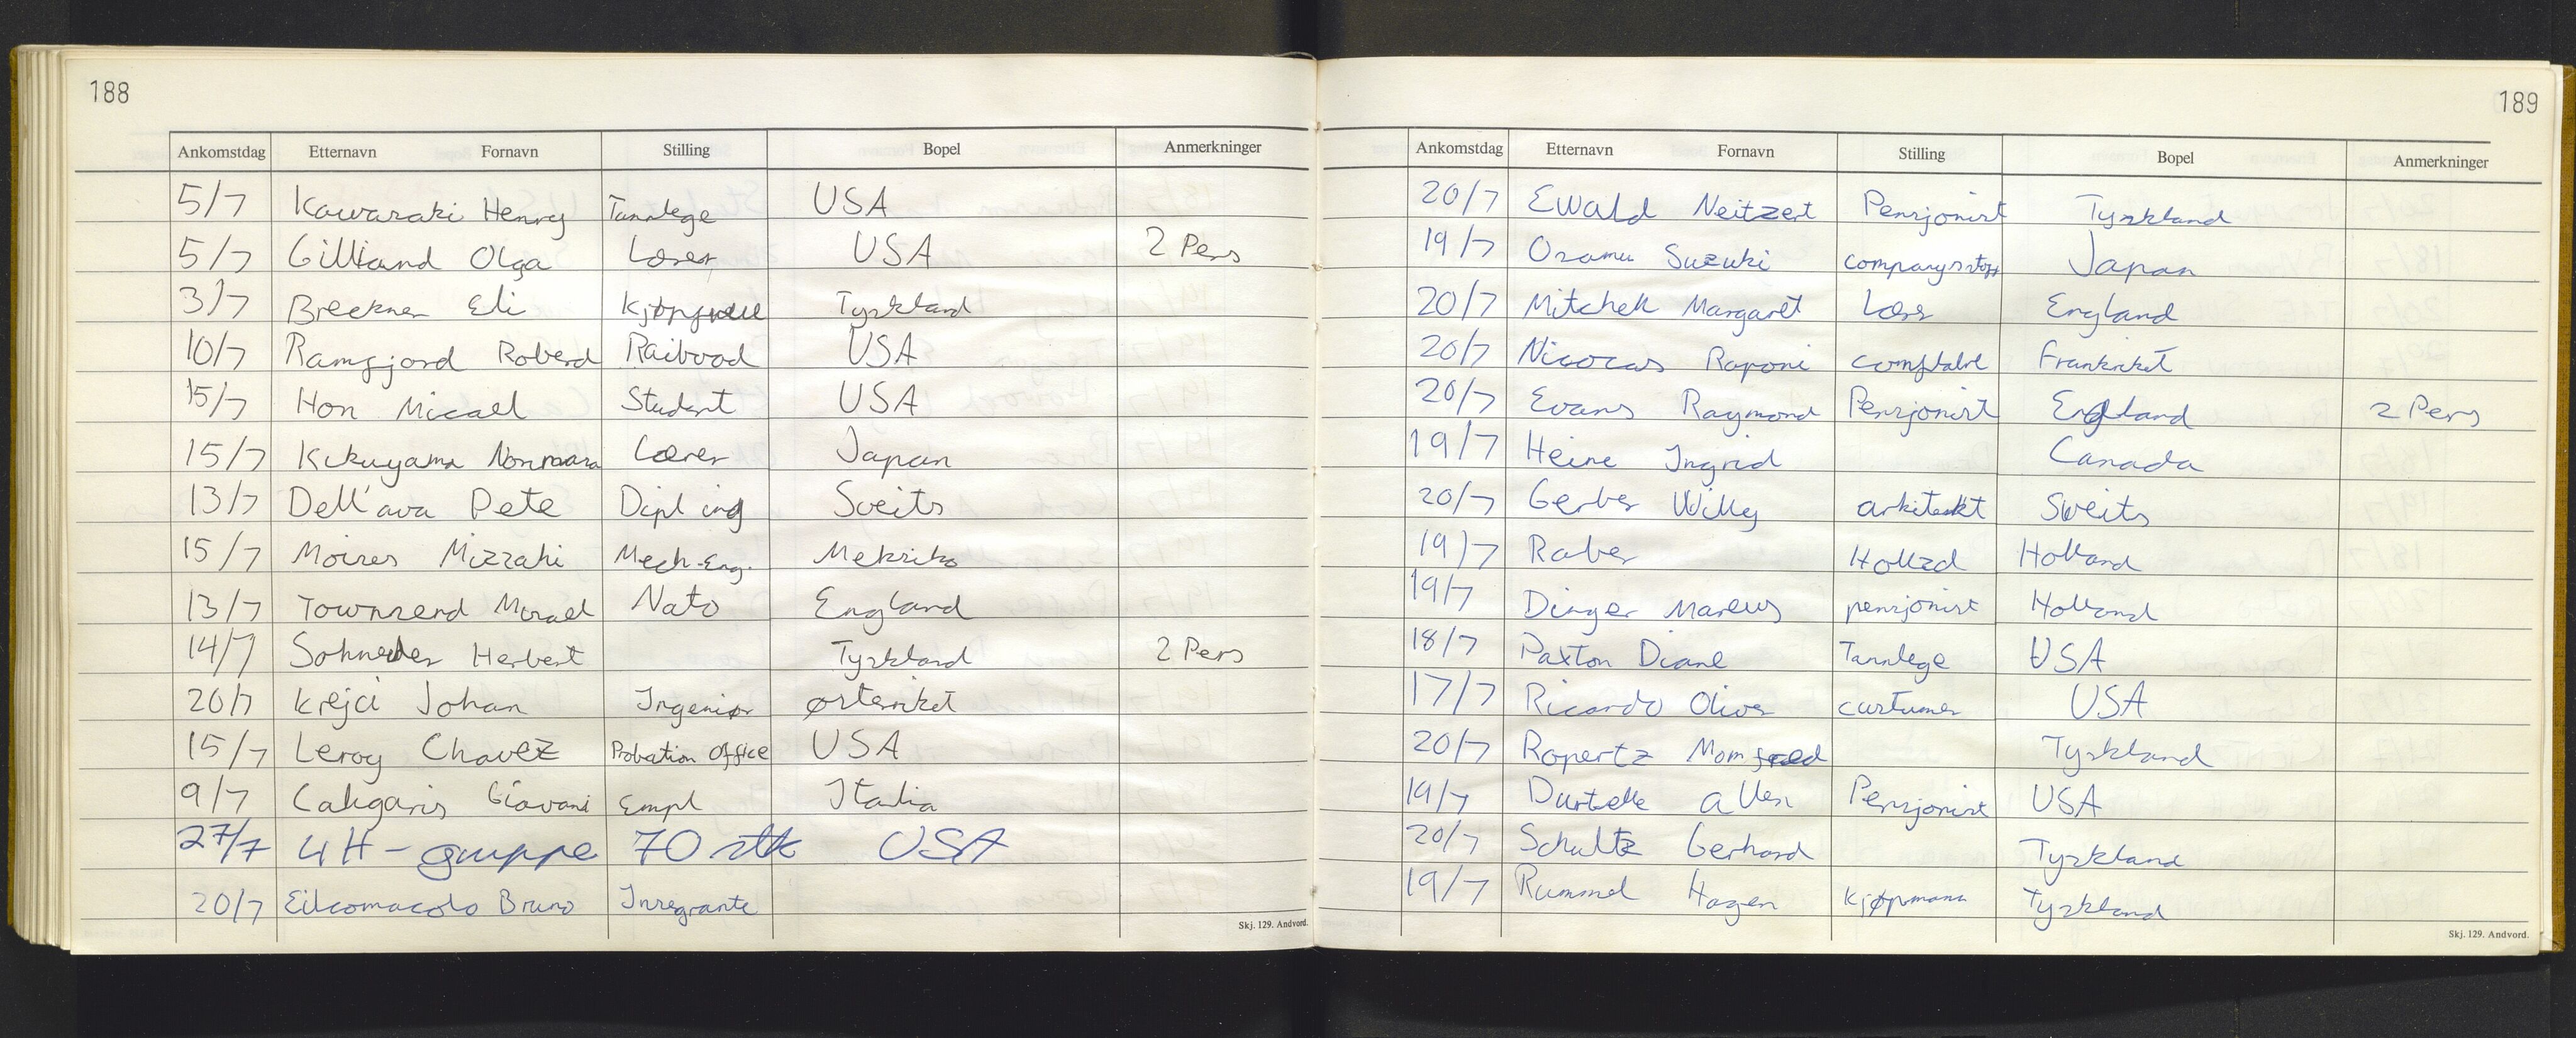 188
Ankomstdag Etternavn Fornavn Stilling Bopel Anmerkninger
5/7 Kawasaki Henry Tannlege USA
5/7 Gilliand Olga Lærer USA 2 Pers
3/7 Breekner Eli Tyskland
10/7 Ramsjord Roberd USA
15/7 Hon Micael Student USA
15/7 Kikuyama Lærer Japan
13/7 Dell'ava Pete Dipl ing Sveits
15/7 Moises Mizrahi Mech-Eng. Meksiko
13/7 Townsend Nato England
14/7 Herbert Tyskland 2 Pers
20/7 Krejci Johan Ingeniør østeriket
15/7 Leroy Chavez Probation Office USA
9/7 Caligaris Giovani Empl Italia
27/7 4H-gruppe 70 stk USA
20/7 Bruno
Skj. 129. Andvord.
189
Ankomstdag Etternavn Fornavn Stilling Bopel Anmerkninger
20/7 Ewald Neitzert Pensjonist Tyskland
19/7 Osamu Suzuki Japan
20/7 Mitchell Margaret England
20/7 Raponi Frankriket
20/7 Evans Raymond Pensjonist England 2 Pers
19/7 Heine Ingrid Canada
20/7 Gerber Willy arkitekt Sveits
19/7 Raber Holland
19/7 Dinger Mareus pensjonist Holland
18/7 Paxton Diane Tannlege USA
17/7 Ricardo Oliver custumer USA
20/7 Ropertz Tyskland
19/7 Allen Pensjonist USA
20/7 Schultz Gerhard Tyskland
19/7 Rummel Hagen kjøpmann Tyskland
Skj. 129. Andvord.